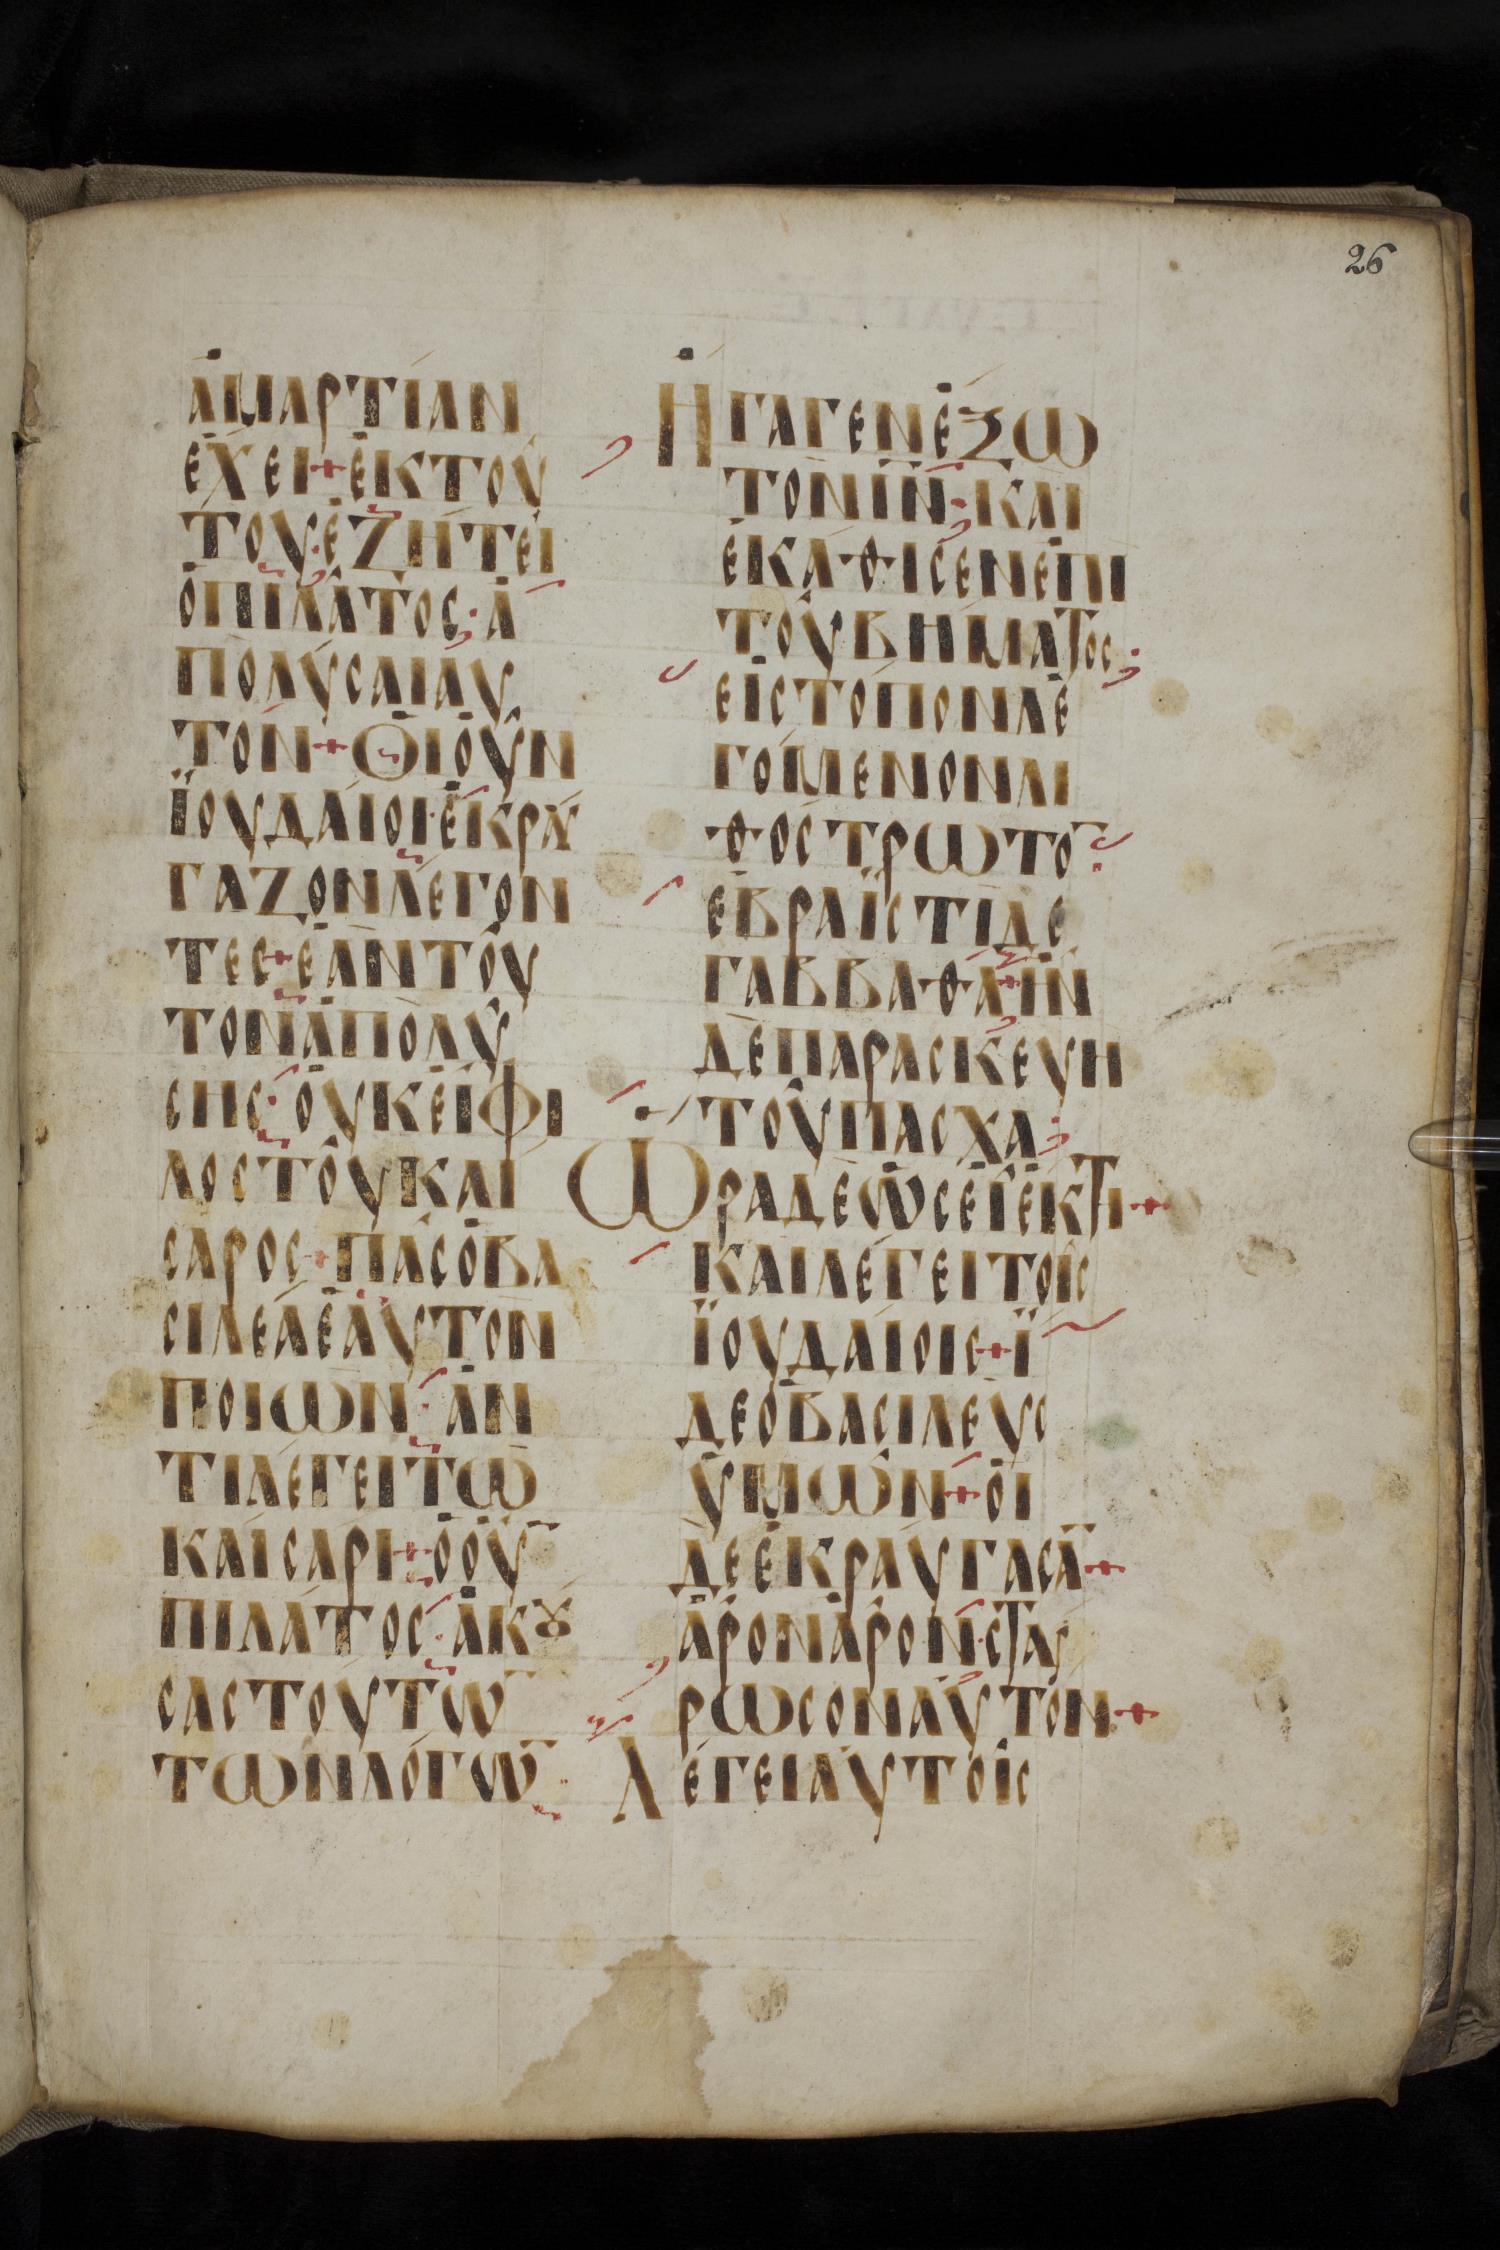 26
ἁμαρτίαν
ἔχει + ἐκ τού
του · ἐζήτει
ὁ πιλάτος · ἀ
πολύσαι ἀυ
τόν + Ὁι οὖν
ϊουδάιοι · ἔκραυ
γαζον λέγον
τες + ἐὰν τοῦ
τον ἀπολύ
σης · οὐκ εἶ φί
λος τοῦ καί
σαρος + πᾶς ὁ βα
σιλέα ἑαυτὸν
ποιῶν · ἀν
τιλέγει τῶ
καίσαρι + ὁ οὖ̅
πιλάτος · ἀκȣ́
σας τούτω̅
τῶν λόγω̅ ·
Ἤγαγεν ἔξω
τὸν ι̅ν̅ · καὶ
ἐκάθισεν ἐπὶ
τοῦ βήματος ·
εἰς τόπον λε
γόμενον λι
θόστρωτο̅ ·
ἑβραϊστὶ δὲ
γαββαθᾶ + ἦν
δὲ παρασκευὴ
τοῦ πάσχα ·
Ὥρα δὲ ὡσεὶ ἕκτη +
καὶ λέγει τοῖς
ϊουδάιοις + ἴ
δε ὁ βασιλεὺς
ὑμῶν + ὁι
δὲ ἐκράυγασα̅ +
ἆρον ἆρον · σταυ
ρωσον ἀυτόν +
Λέγει ἀυτοῖς